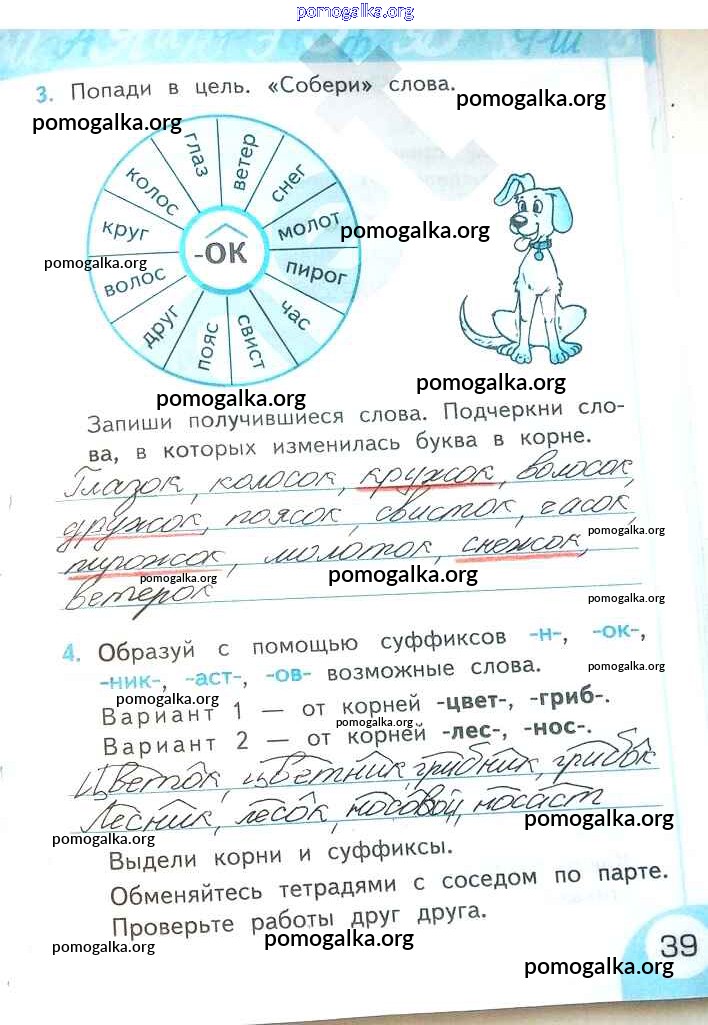 pomogalka.org
3. Попади в цель. «Собери» слова.
pomogalka.org
pomogalka.org
глаз
ветер
снег
молот
пирог
час
свист
пояс
друг
волос
круг
колос
-ОК
pomogalka.org
pomogalka.org
pomogalka.org
pomogalka.org
Запиши получившиеся слова. Подчеркни сло-
ва, в которых изменилась буква в корне.
Глазок, колосок, кружок, волосок,
дружок, поясок, свисток, часок,
pomogalka.org
пирожок, молоток, снежок,
pomogalka.org
pomogalka.org
ветерок
pomogalka.org
4. Образуй с помощью суффиксов -н-, -ок-,
-ник-, -аст-, -ов- возможные слова.
pomogalka.org
pomogalka.org
Вариант 1 — от корней -цвет-, -гриб-.
pomogalka.org
Вариант 2 — от корней -лес-, -нос-.
Цветок, цветник, грибник, грибок
Лесник, лесок, носовой, носаст
pomogalka.org
pomogalka.org
Выдели корни и суффиксы.
Обменяйтесь тетрадями с соседом по парте.
Проверьте работы друг друга.
pomogalka.org
pomogalka.org
39
pomogalka.org